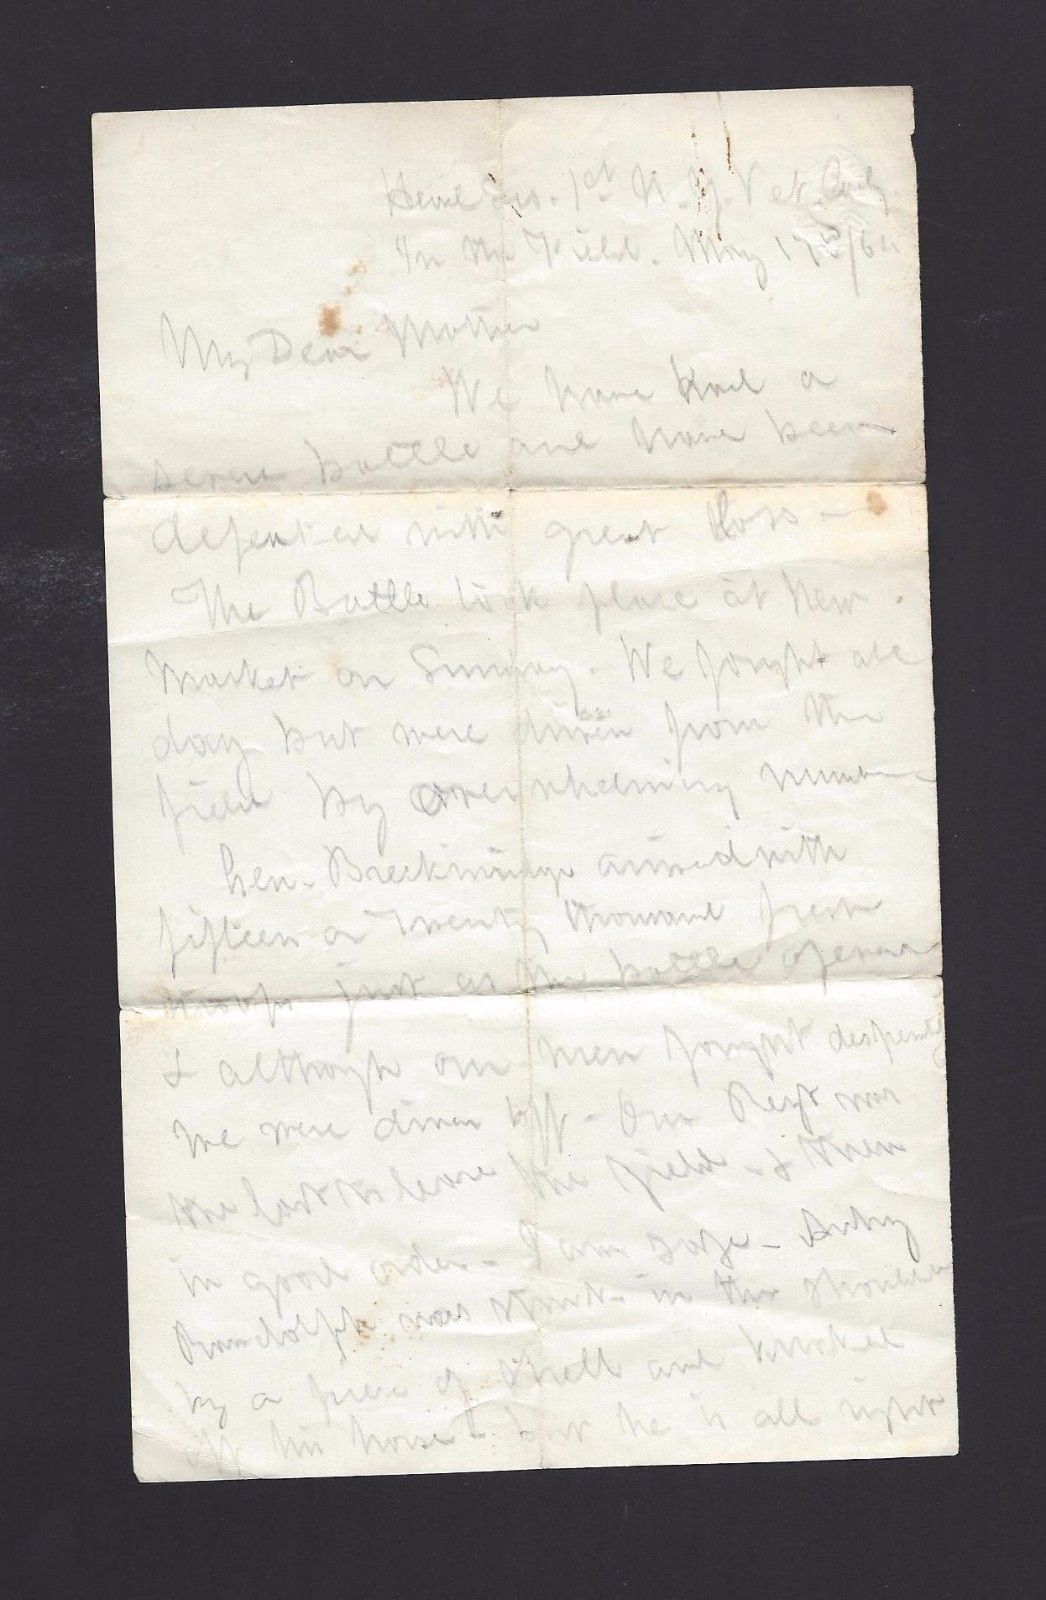 Head Qrs. 1st N.Y. Vet. Cavly.
In the Field. May 17th/64
My Dear Mother
We have had a
severe battle and have been
defeated with great loss -
The Battle took place at New
Market on Sunday. We fought all
day but were driven from the
field by overwhelming numbers
Gen. Breckinridge arrived with
fifteen or Twenty thousand fresh
troops just as the battle opened
& although our men fought desperately
we were driven off - Our Regt was
the last to leave the field - & then
in good order - I am safe -
Randolph was struck in the shoulder
by a piece of shell and knocked
off his horse - but he is all right